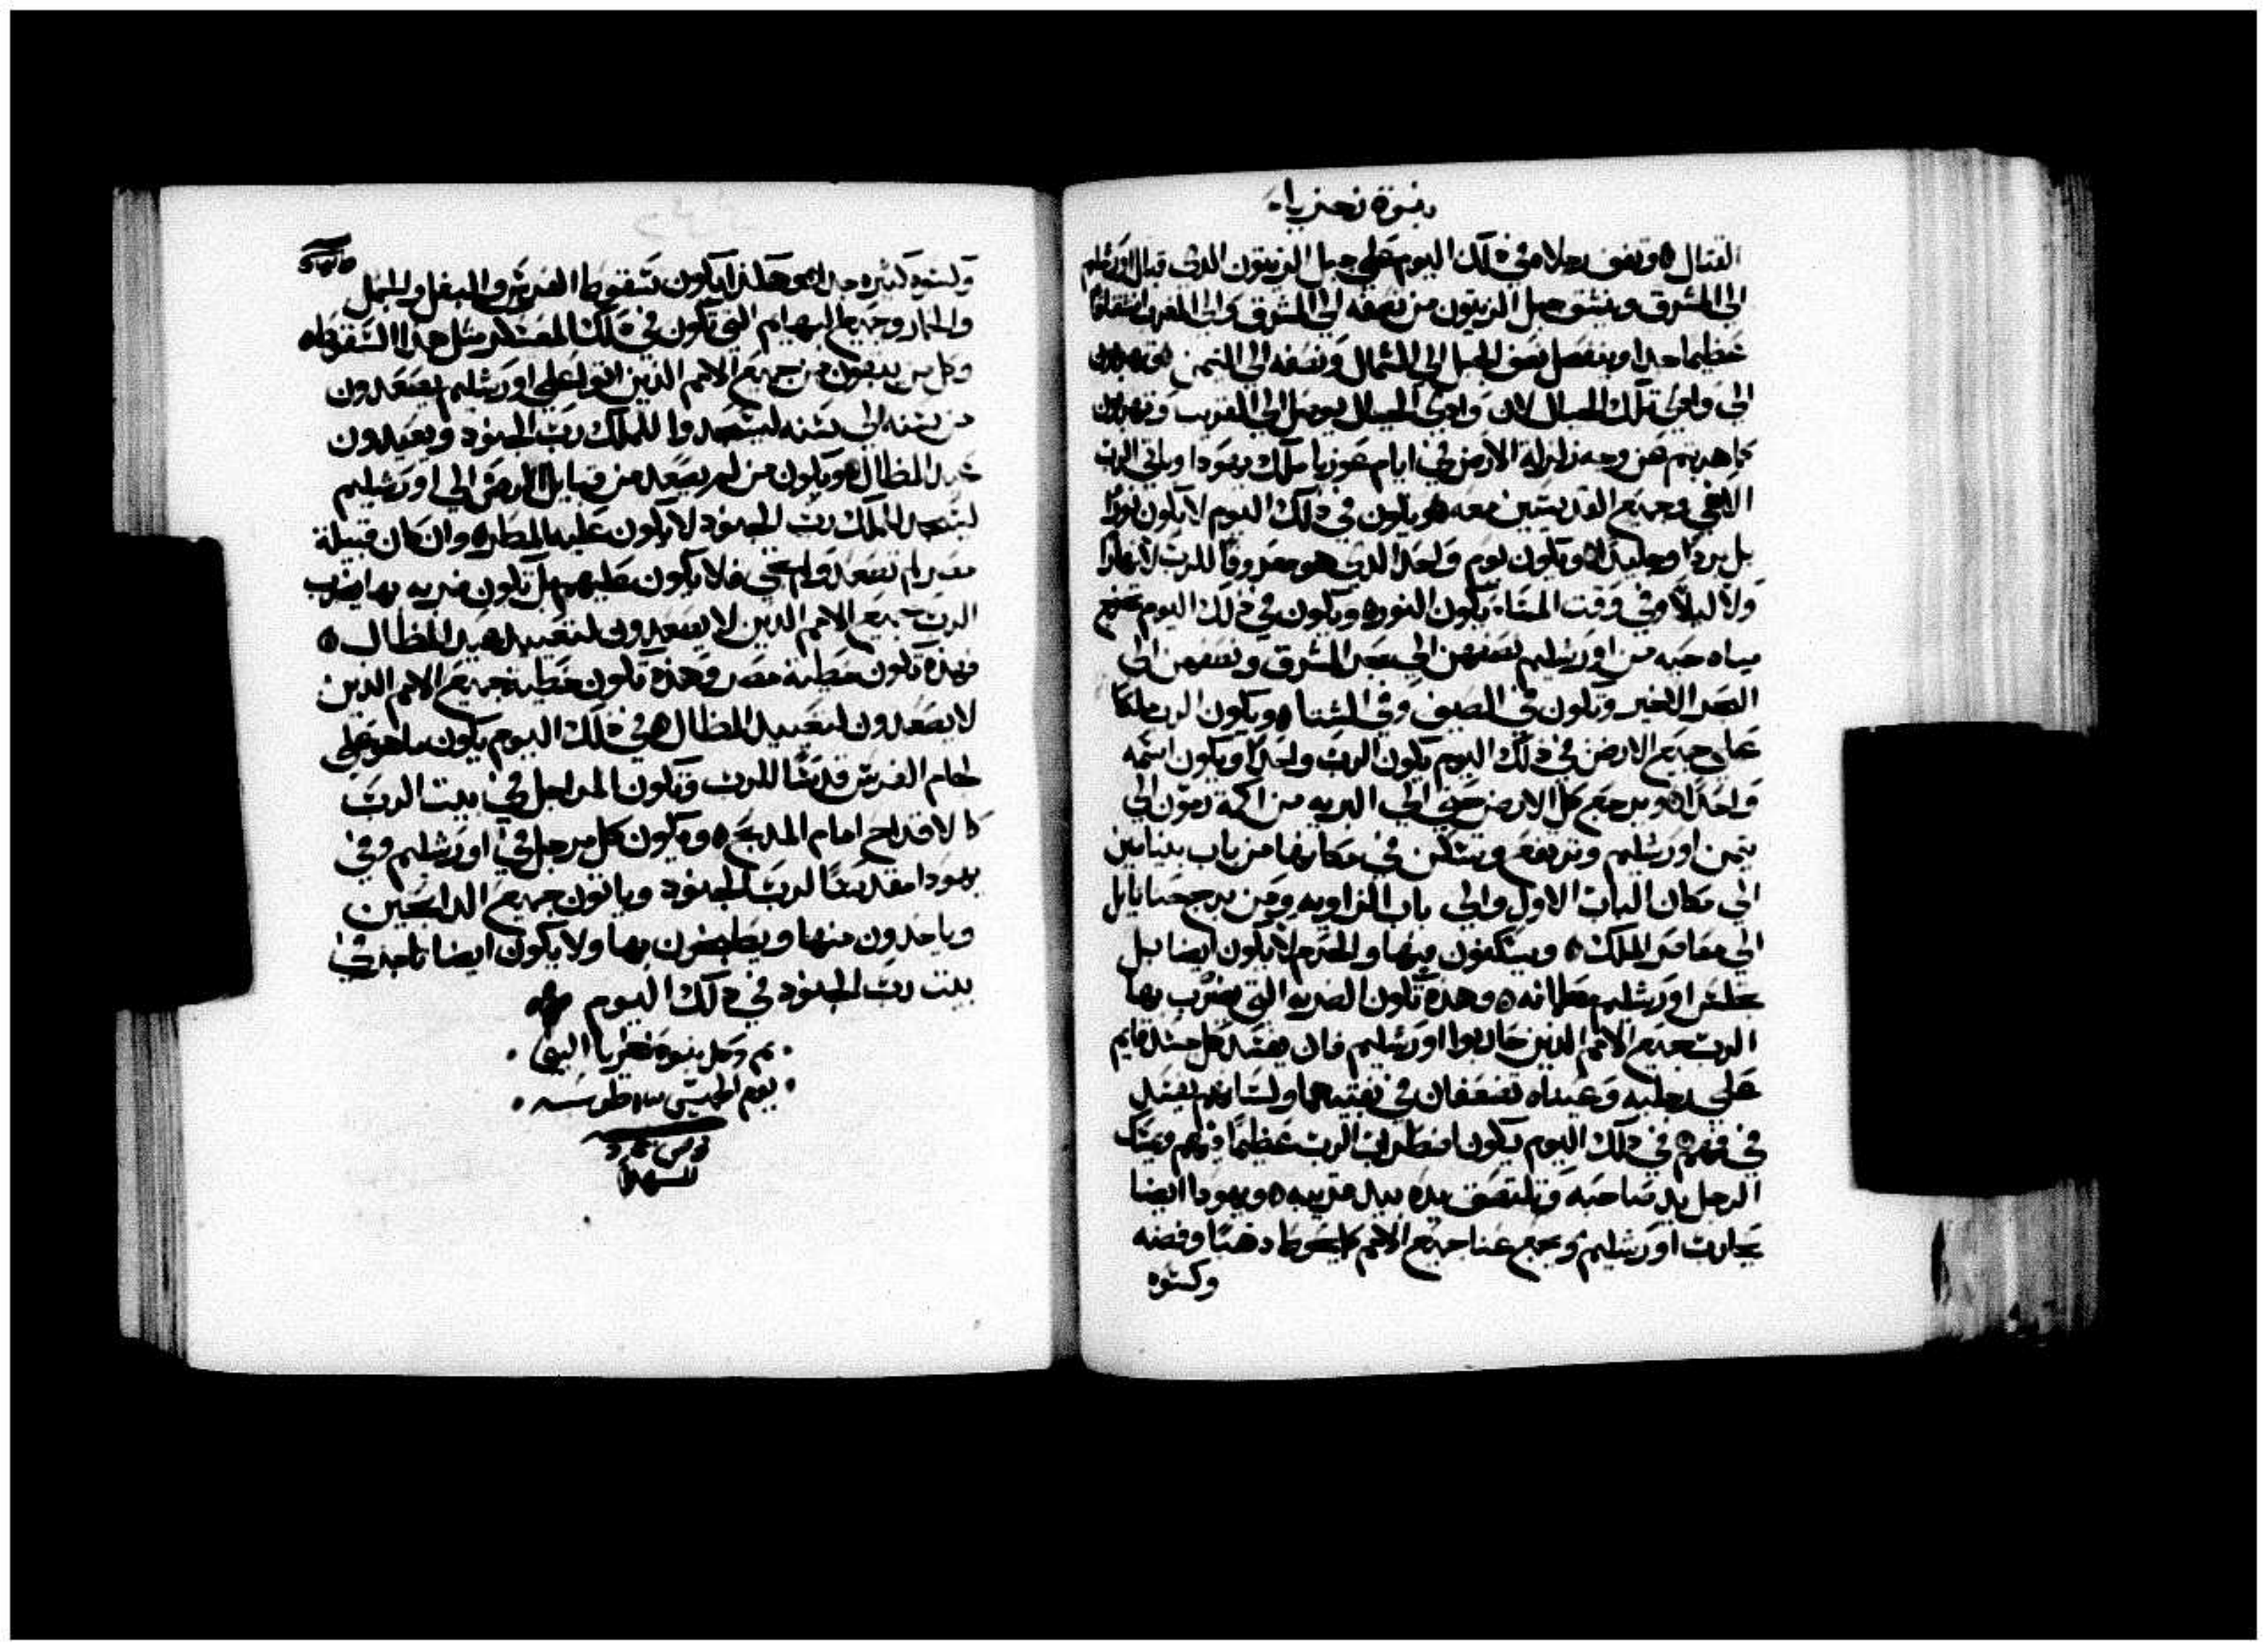 نبوة زخريا
القتال ٥ وتقف رجلاه في ذلك اليوم على جبل الزيتون الذي قبال اورشليم
الى المشرق وينشق جبل الزيتون من نصفه الى المشرق والى المغرب انشقاقا
عظيما جدا وينفصل نصف الجبل الى الشمال ونصفه الى التيمن ٥ وتهربون
الى وادي تلك الجبال لان وادي الجبال يوصل الى القريب وتهربون
كما هربتم من وجه زلزلة الارض في ايام عوزيا ملك يهودا وياتي الرب
الاهي وجميع القديسين معه ٥ ويكون في ذلك اليوم لا يكون نورا
بل بردا وجليدا ٥ ويكون يوم واحد الذي هو معروفا للرب لا نهارا
ولا ليلا وفي وقت المسا يكون النور ٥ ويكون في ذلك اليوم تخرج
مياه حيه من اورشليم نصفهن الى بحر المشرق ونصفهن الى
البحر الاخير وتكون في الصيف وفي الشتا ٥ ويكون الرب ملكا
على جميع الارض في ذلك اليوم يكون الرب واحدا ويكون اسمه
واحدا ٥ ويرجع كل الارض حتى الى البريه من اكمة رمون الى
تيمن اورشليم وترتفع وتسكن في مكانها من باب بنيامين
الى مكان الباب الاول والى باب الزاويه ومن برج حنانايل
الى معاصر الملك ٥ ويسكنون فيها والحرم لا يكون ايضا بل
تجلس اورشليم مطمانه ٥ وهذه تكون الضربه التي يضرب بها
الرب جميع الامم الذين حاربوا اورشليم فان يفسد كل جسد قايم
على رجليه وعيناه تضعفان في نقبتيهما ولسانهم يفسد
في فمهم ٥ في ذلك اليوم يكون اضطراب الرب عظيما فيهم ويمسك
الرجل يد صاحبه وتلتصق يده بيد قريبه ٥ ويهودا ايضا
يحارب اورشليم ويجمع غنا جميع الامم كما يحوط ذهبا وفضه
وكسوه
وكسوه كثيره جدا ٥ وهكذا يكون سقوط الفرس والبغل والجمل
والحمار وجميع البهايم التي تكون في ذلك المعسكر مثل هذا السقوط ٥
وكل من يبقون من جميع الامم الذين اتوا على اورشليم يصعدون
من سنه الى سنه ليسجدوا للملك رب الجنود ويعيدون
عيد المظال ٥ ويكون من لم يصعد من قبايل الارض الى اورشليم
ليسجد للملك رب الجنود لا يكون عليهم المطر ٥ وان كان قبيلة
مصر لم تصعد ولم تجي فلا يكون عليهم بل تكون ضربه بها يضرب
الرب جميع الامم الذين لا يصعدون لتعييد عيد المظال ٥
فهذه تكون خطية مصر وهذه تكون خطية جميع الامم الذين
لا يصعدون لتعييد المظال ٥ في ذلك اليوم يكون ما هو على
لجام الفرس قدسا للرب وتكون المراجل في بيت الرب
كالاقداح امام المدبح ٥ ويكون كل مرجل في اورشليم وفي
يهودا مقدسا لرب الجنود وياتون جميع الدابحين
وياخدون منها ويطبخون بها ولا يكون ايضا تاجر في
بيت رب الجنود في ذلك اليوم
تم وكمل نبوة زخريا النبي
يوم الخميس